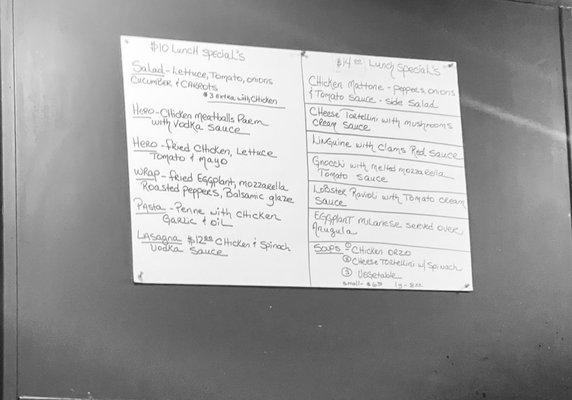 $10 Lunch Special's
Salad - Lettuce, Tomato, onions
Cucumber & Carrots
$3 extra with chicken
Hero - Chicken Meatballs Parm
with Vodka Sauce
Hero - Fried Chicken, Lettuce
Tomato & Mayo
Wrap - Fried Eggplant, mozzarella
Roasted Peppers, Balsamic glaze
Pasta - Penne with Chicken
Garlic & oil
Lasagna $12.00 Chicken & Spinach
Vodka Sauce
$14.00 Lunch Special's
Chicken Mattone - peppers, onions
& Tomato Sauce - side Salad
Cheese Tortellini with mushrooms
Cream Sauce
Linguine with Clams Red Sauce
Gnocchi with melted mozzarella
Tomato Sauce
Lobster Ravioli with Tomato cream
Sauce
Eggplant Milanese served over
Arugula
Soups ① Chicken Orzo
② Cheese Tortellini w/ Spinach
③ Vegetable